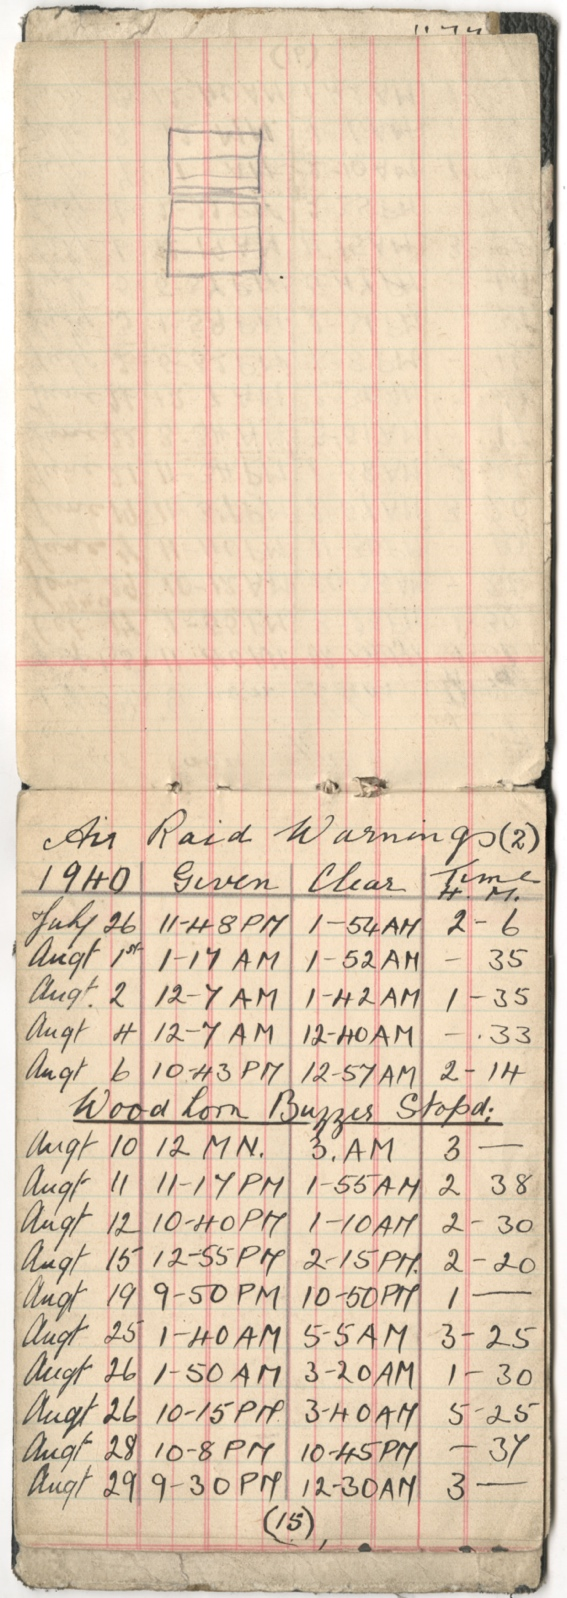 Air Raid Warnings (2)
1940 Given Clear Time
H. M.
July 26 11-48PM 1-54AM 2-6
Augt 1st 1-17 AM 1-52AM - 35
Augt. 2 12-7 AM 1-42AM 1-35
Augt 4 12-7 AM 12-40AM -.33
Augt 6 10-43 PM 12-57AM 2-14
Wood horn Buzzer Stopd:
Augt 10 12 MN. 3. AM 3 —
Augt 11 11-17 PM 1-55AM 2 38
Augt 12 10-40PM 1-10AM 2-30
Augt 15 12-55PM 2-15PM. 2-20
Augt 19 9-50 PM 10-50PM 1 —
Augt 25 1-40AM 5-5AM 3-25
Augt 26 1-50 AM 3-20AM 1-30
Augt 26 10-15PM 3-40AM 5-25
Augt 28 10-8 PM 10-45PM - 37
Augt 29 9-30 PM 12-30AM 3 —
(15)